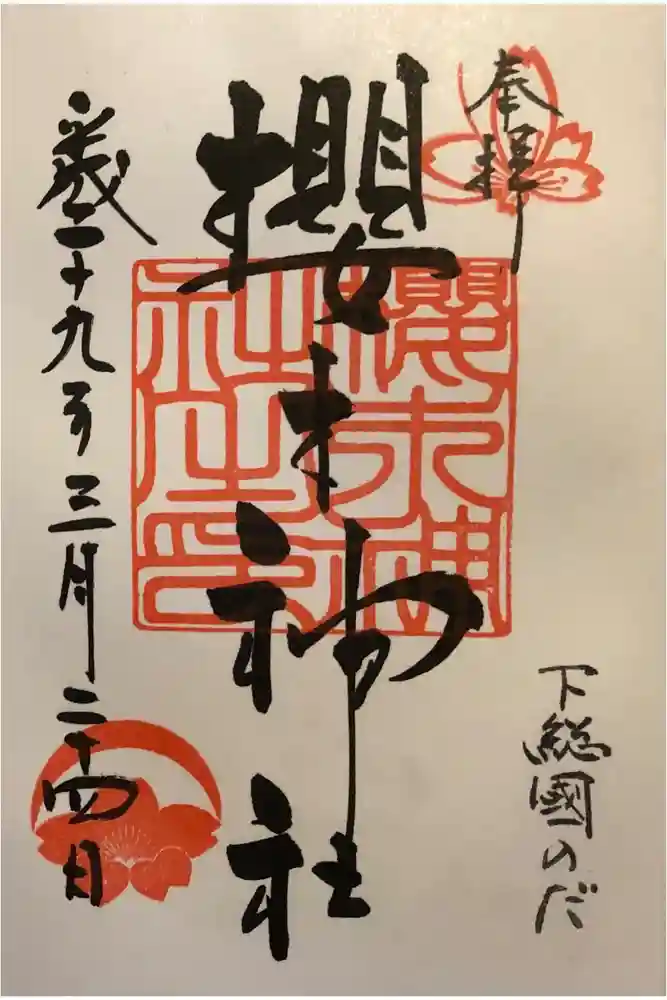 奉拝
下総國のだ
櫻木神社
櫻木神
社之印
平成二十九年三月二十四日